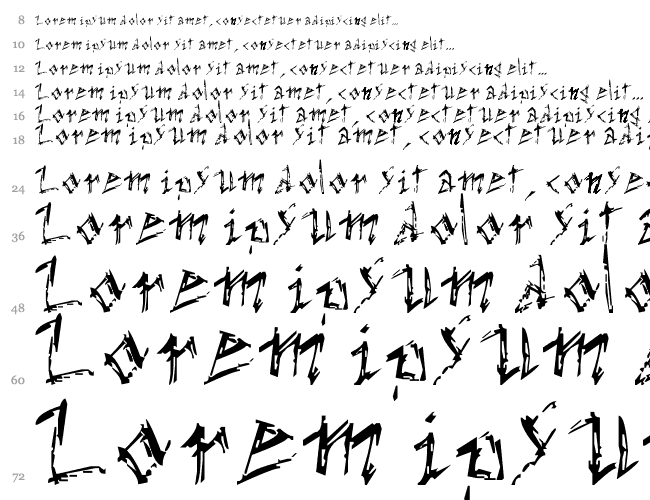 8 Lorem ipsum dolor sit amet, consectetuer adipiscing elit...
10 Lorem ipsum dolor sit amet, consectetuer adipiscing elit...
12 Lorem ipsum dolor sit amet, consectetuer adipiscing elit...
14 Lorem ipsum dolor sit amet, consectetuer adipiscing elit...
16 Lorem ipsum dolor sit amet, consectetuer adipiscing
18 Lorem ipsum dolor sit amet, consectetuer adi
24 Lorem ipsum dolor sit amet, conse
36 Lorem ipsum dolor sit
48 Lorem ipsum dolo
60 Lorem ipsum
72 Lorem ipsu